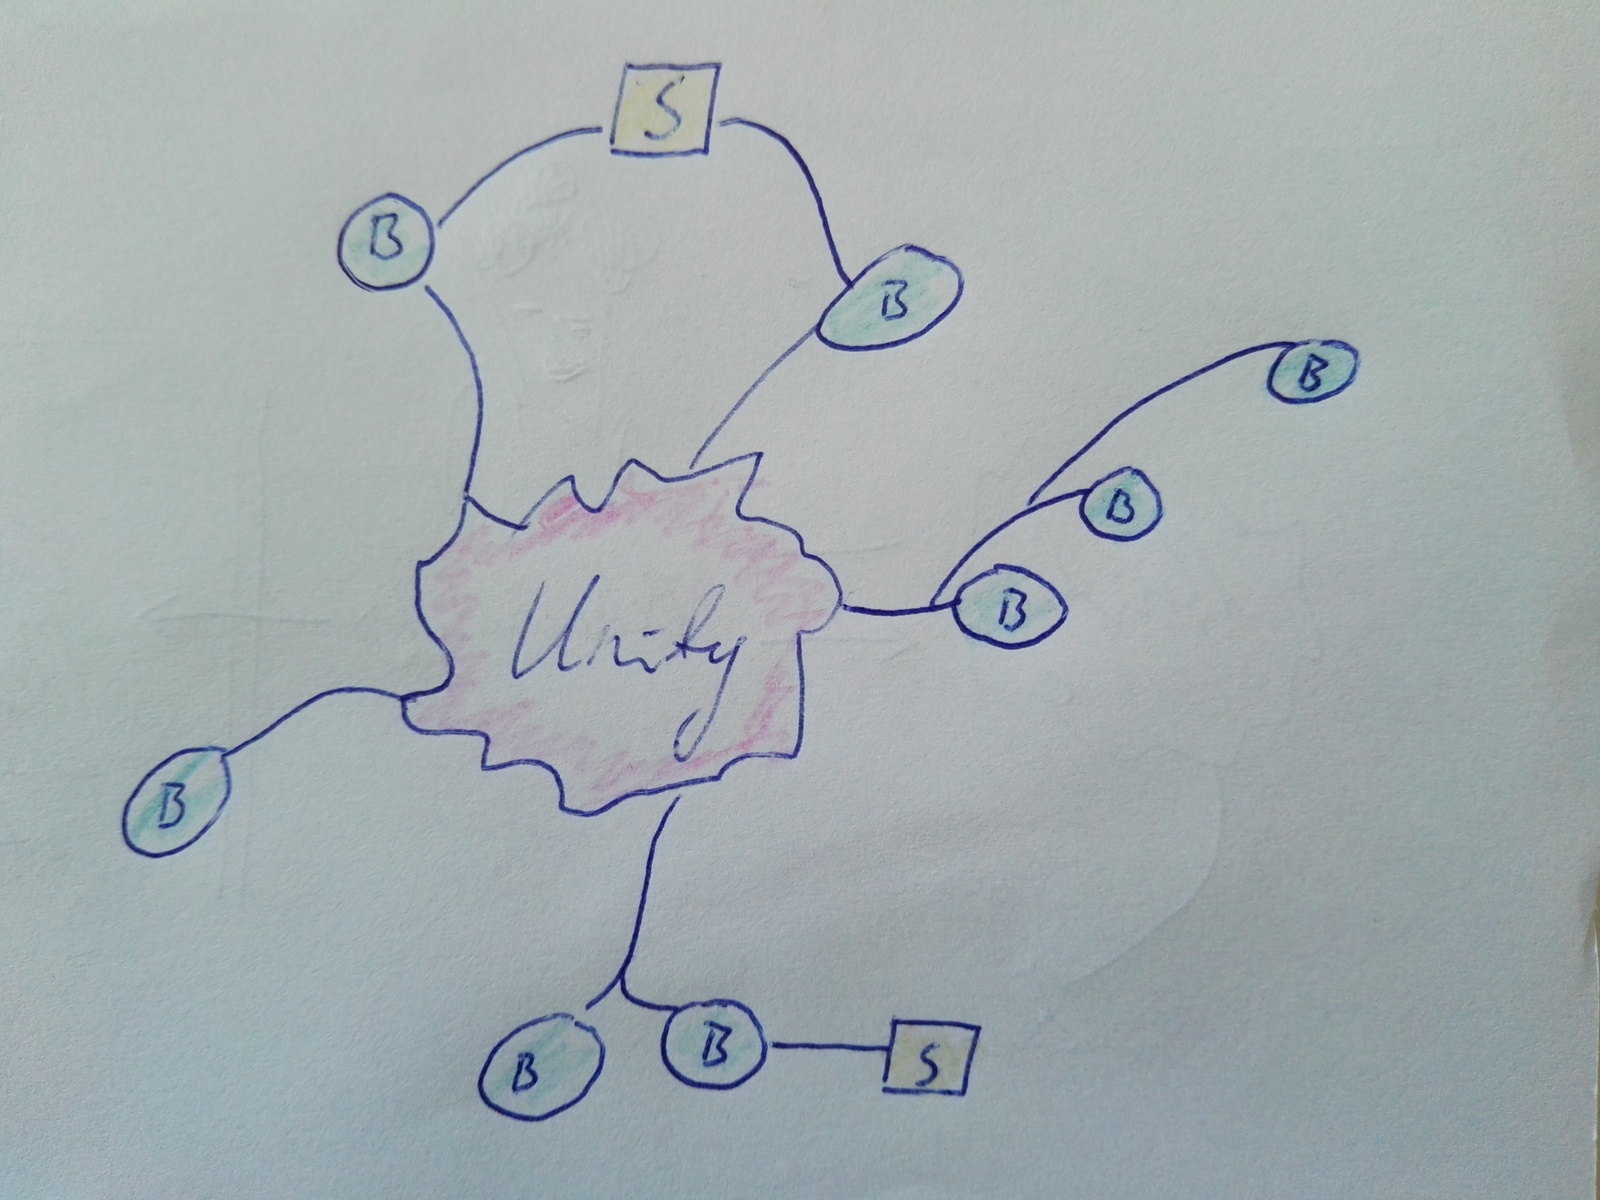 S
B
B
B
B
B
Unity
B
B
B
S